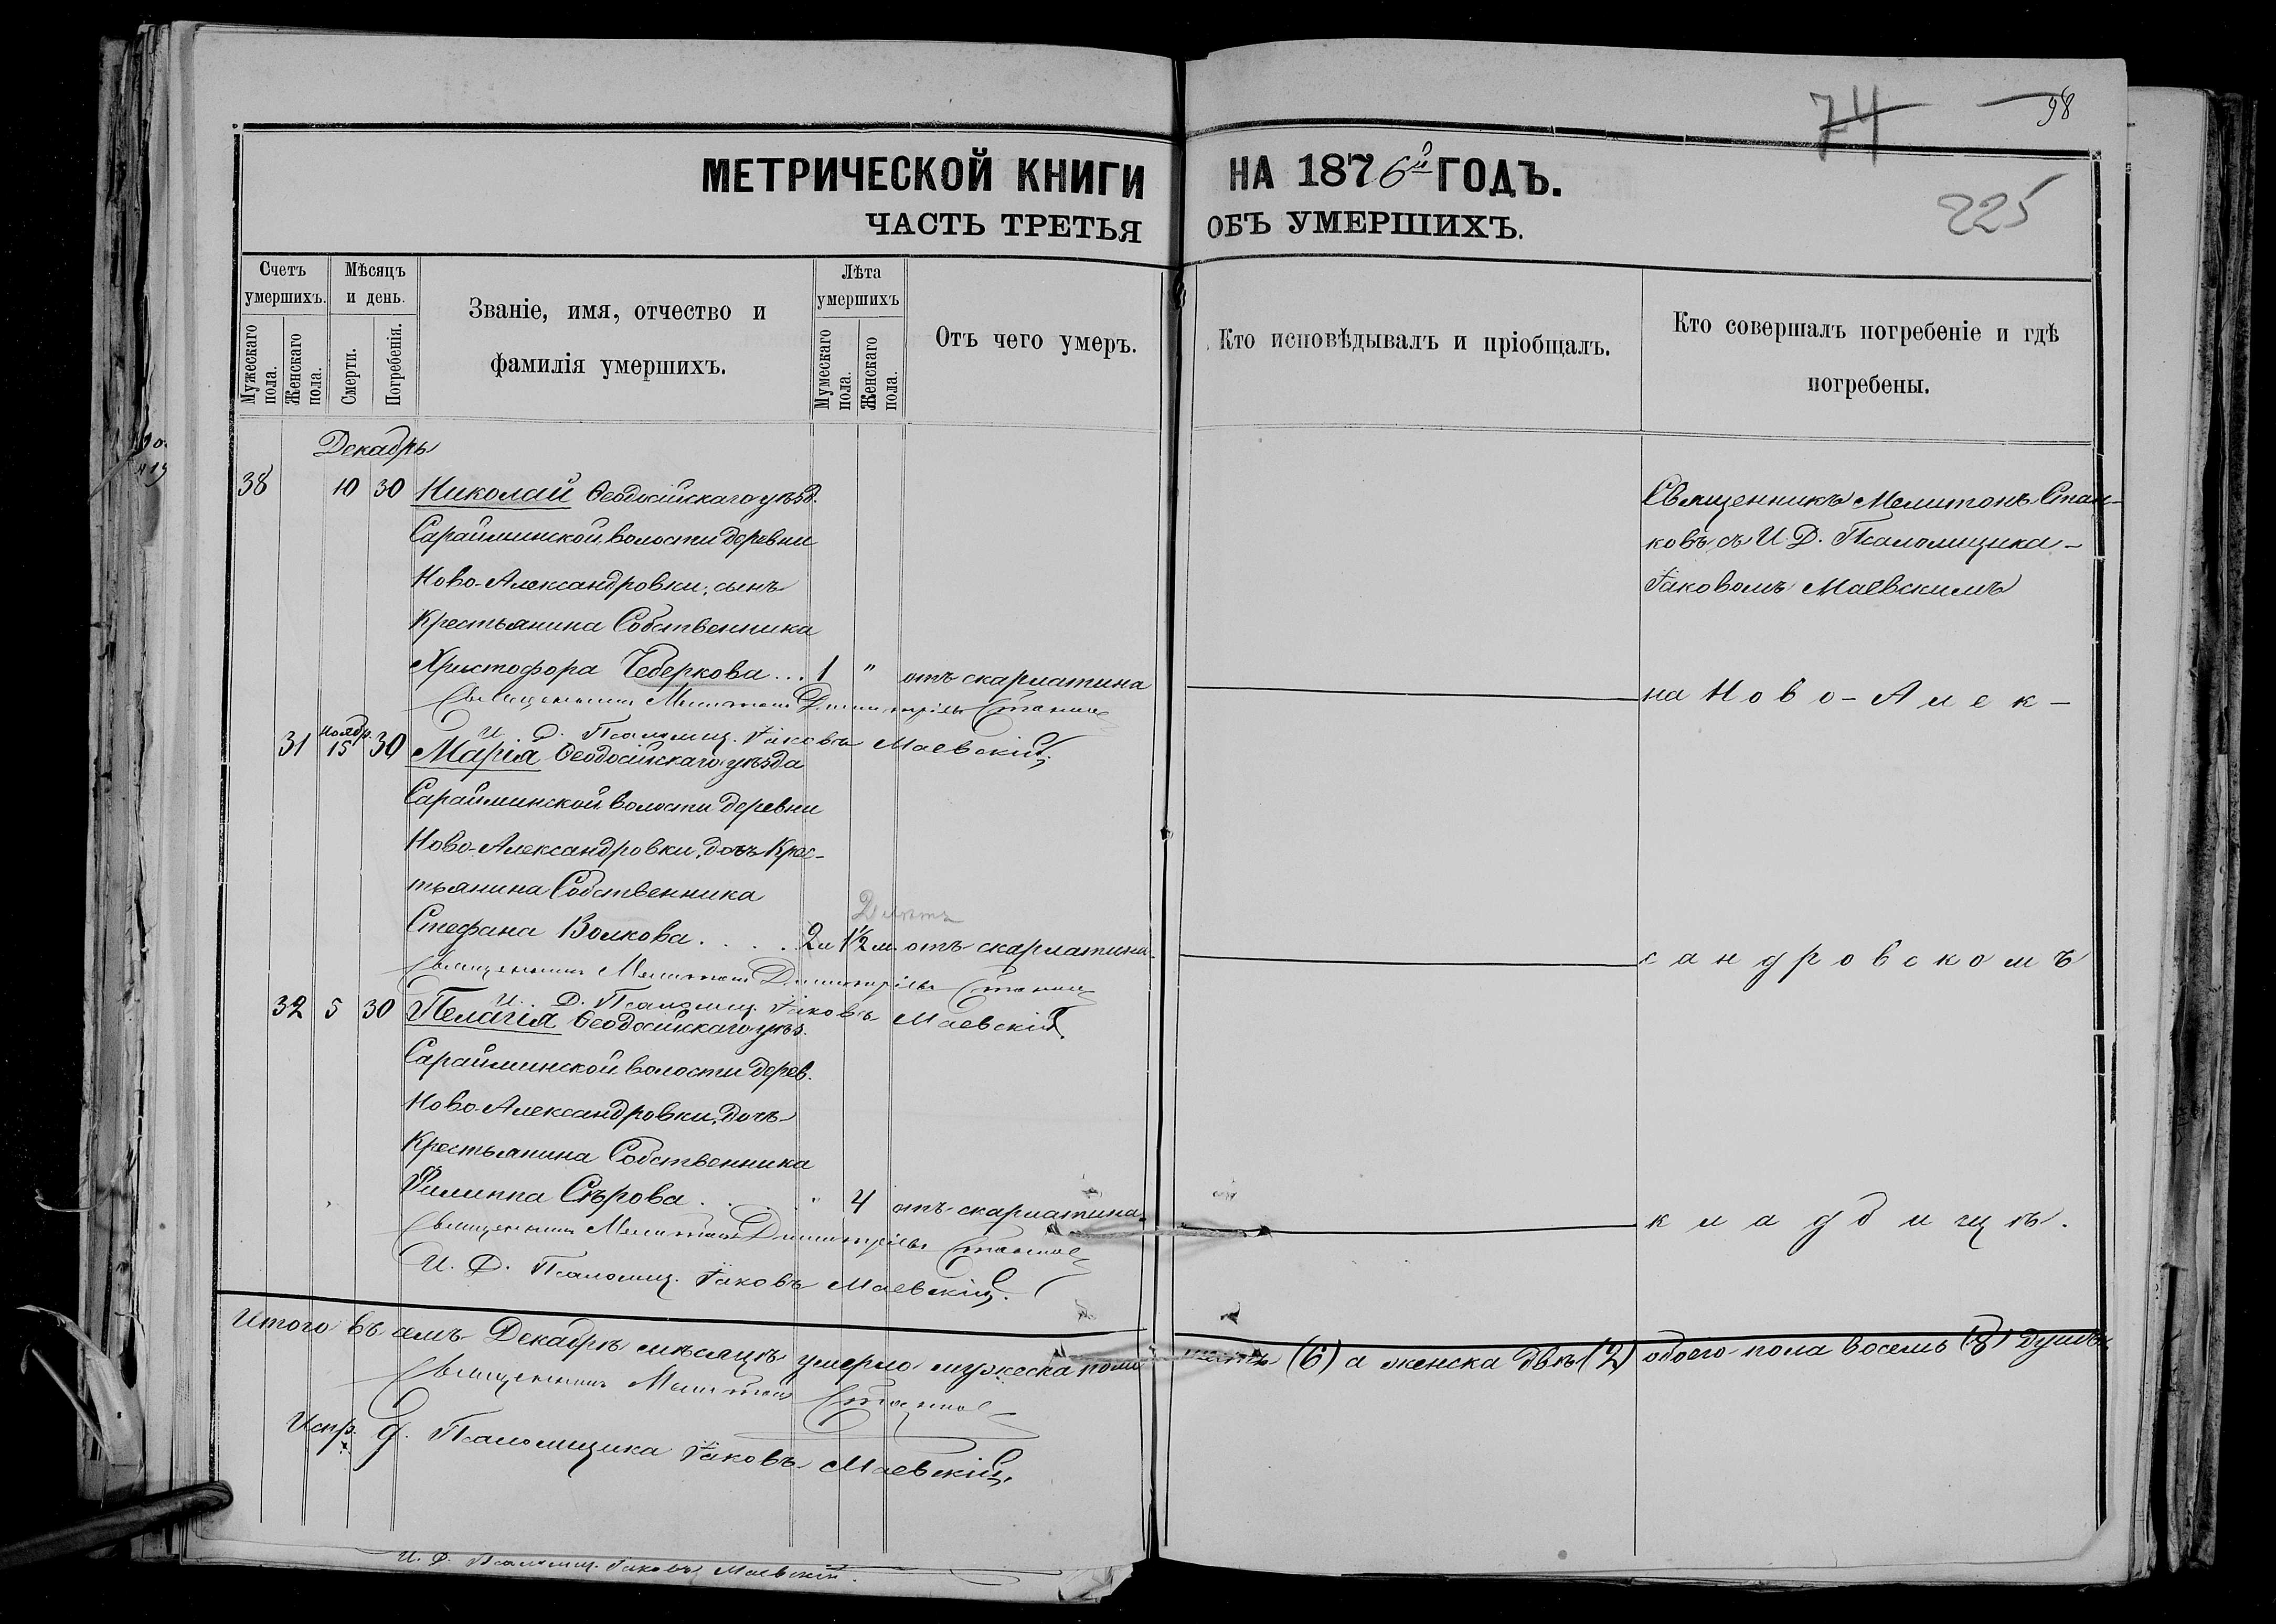 74 98
МЕТРИЧЕСКОЙ КНИГИ НА 1876й ГОДЪ.
225
ЧАСТЬ ТРЕТЬЯ ОБЪ УМЕРШИХЪ.
Счетъ умершихъ.
Мужескаго пола.
Женскаго пола.
Мѣсяцъ и день.
Смерти.
Погребенія.
Званіе, имя, отчество и
фамилія умершихъ.
Лѣта умершихъ
Мумескаго пола.
Женскаго пола.
Отъ чего умеръ.
Кто исповѣдывалъ и пріобщалъ.
Кто совершалъ погребеніе и гдѣ
погребены.
Декабрь
38 10 30 Николай Ѳеодосійскаго уѣзд.
Сарайминской волости деревни
Ново-Александровки, сынъ
Крестьянина Собственника
Христофора Чеберкова... 1 " отъ скарлатина
Священникъ Мелитонъ Димитріевъ Станковъ
И. Д. Псаломщ. Іаковъ Маевскій.
Священникъ Мелитонъ Стан-
ковъ съ И. Д. Псаломщика-
Іаковомъ Маевскимъ
на Ново-Алек-
31 Ноябр. 15 30 Марія Ѳеодосійскаго уѣзда
Сарайминской волости деревни
Ново-Александровки, дочь Крес-
тьянина Собственника
Стефана Волкова.... 2 и 1½ м. отъ скарлатина.
Священникъ Мелитонъ Димитріевъ Станковъ
И. Д. Псаломщ. Іаковъ Маевскій.
сандровскомъ
32 5 30 Пелагія Ѳеодосійскаго уѣз.
Сарайминской волости дерев.
Ново-Александровки, дочь
Крестьянина Собственника
Филиппа Сѣрова... " 4 отъ скарлатина.
Священникъ Мелитонъ Димитріевъ Станковъ
И. Д. Псаломщ. Іаковъ Маевскій.
кладбищѣ.
Итого въ семъ Декабрѣ мѣсяцѣ умерло мужеска пола шесть (6) а женска двѣ (2) обоего пола восемь (8) душъ
Священникъ Мелитонъ Станковъ
Испр. д. Псаломщика Іаковъ Маевскій.
И. Д. Псаломщ. Іаковъ Маевскій.